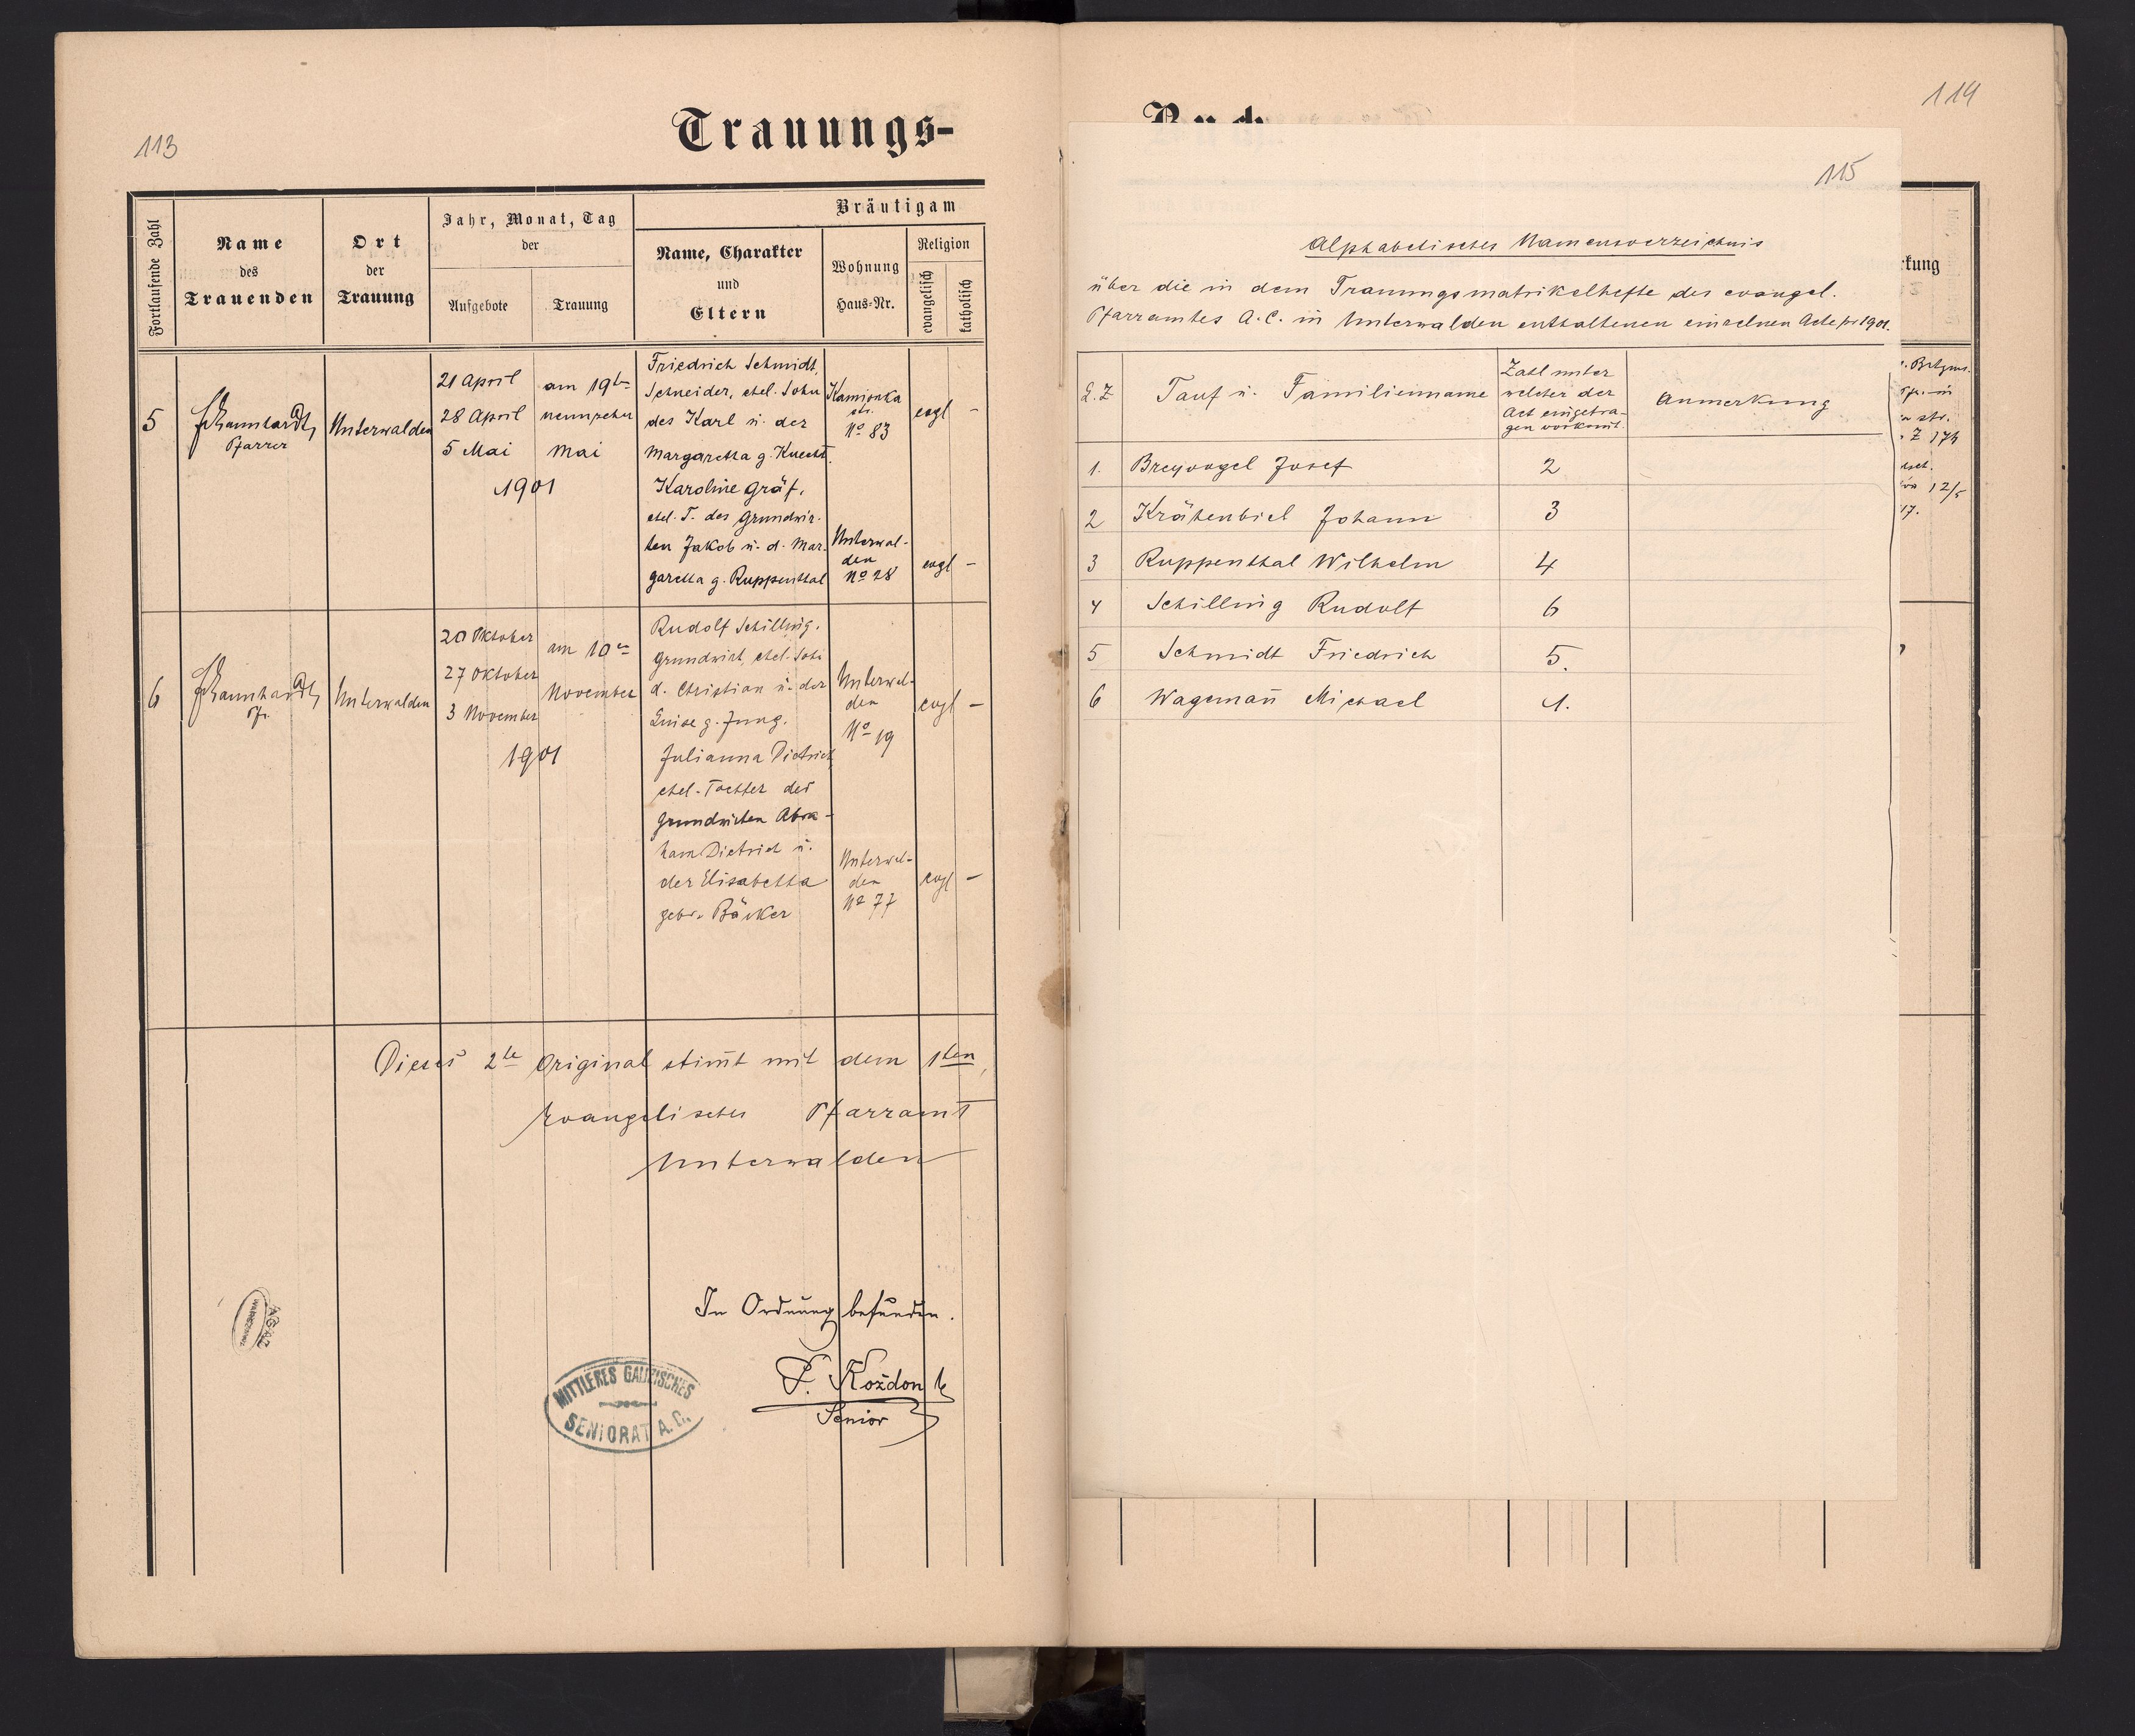 113
Trauungs-
Fortlaufende Zahl
Name
des
Trauenden
Ort
der
Trauung
Jahr, Monat, Tag
der
Aufgebote
Trauung
Bräutigam
Name, Charakter
und
Eltern
Wohnung
Haus-Nr.
Religion
evangelisch
katholisch
5
Pfarrer
Unterwalden
21 April
28 April
5 Mai
am 19ten
neunzehn
Mai
1901
Friedrich Schmidt,
Schneider, ehel. Sohn
des Karl u. der
Margaretha g. Knecht.
Karoline Gräf,
ehel. T. des Grundwir-
ten Jakob u. d. Mar-
garetha g. Ruppenthal
Kamionka
str.
No 83
Unterwal-
den
No 28
evgl -
evgl -
6
Pfr.
Unterwalden
20 Oktober
27 Oktober
3 November
am 10en
November
1901
Rudolf Schilling,
Grundwirt, ehel. Sohn
d. Christian u. der
Luise g. Jung.
Julianna Dietrich,
ehel. Tochter des
Grundwirten Abra-
ham Dietrich u.
der Elisabetha
gebr. Bäcker
Unterwal-
den
No 19
Unterwal-
den
No 77
evgl -
evgl -
Dieses 2te Original stimt mit dem 1ten,
Evangelisches Pfarramt
Unterwalden
In Ordnung befunden.
Kożdon
Senior
MITTLERES GALIZISCHES
SENIORAT A.C.
114
Buch
115
Alphabetisches Namensverzeichnis
über die in dem Trauungsmatrikelhefte des evangel.
Pfarramtes A.C. in Unterwalden enthaltenen einzelnen Acte pr 1901.
L.Z
Tauf u. Familienname
Zahl unter
welcher der
Act eingetra-
gen vorkomt.
Anmerkung
1. Breyvogel Josef 2
2 Krähenbiel Johann 3
3 Ruppenthal Wilhelm 4
4 Schilling Rudolf 6
5 Schmidt Friedrich 5.
6 Wagemañ Michael 1.
rkung
in
str.
Z 174
12/5
17.